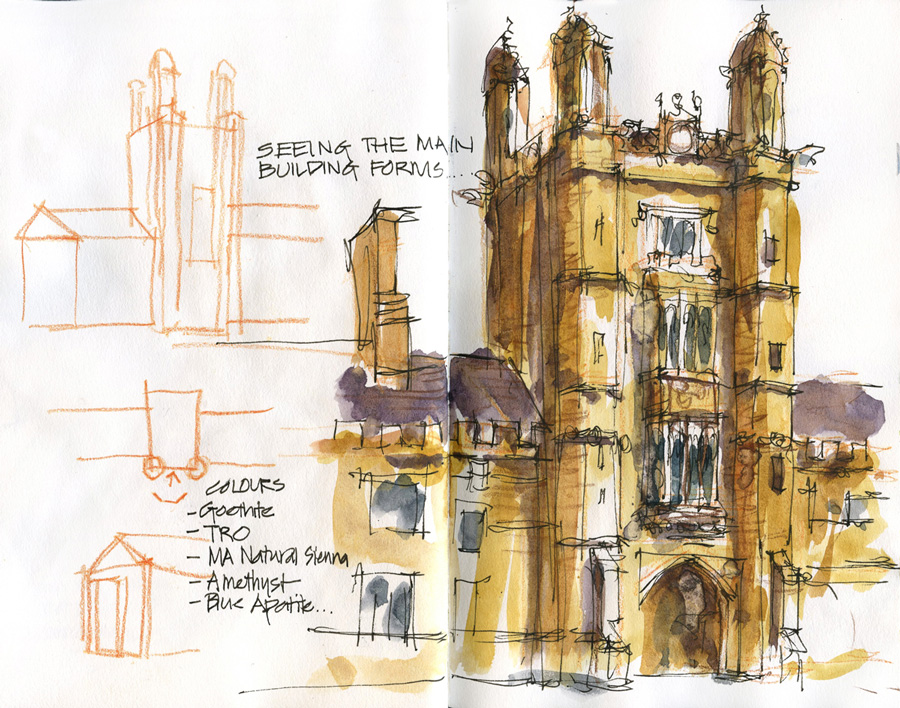 SEEING THE MAIN
BUILDING FORMS....
COLOURS
- Goethite
- TRO
- MA Natural Sienna
- Amethyst
- Blue Apatite...